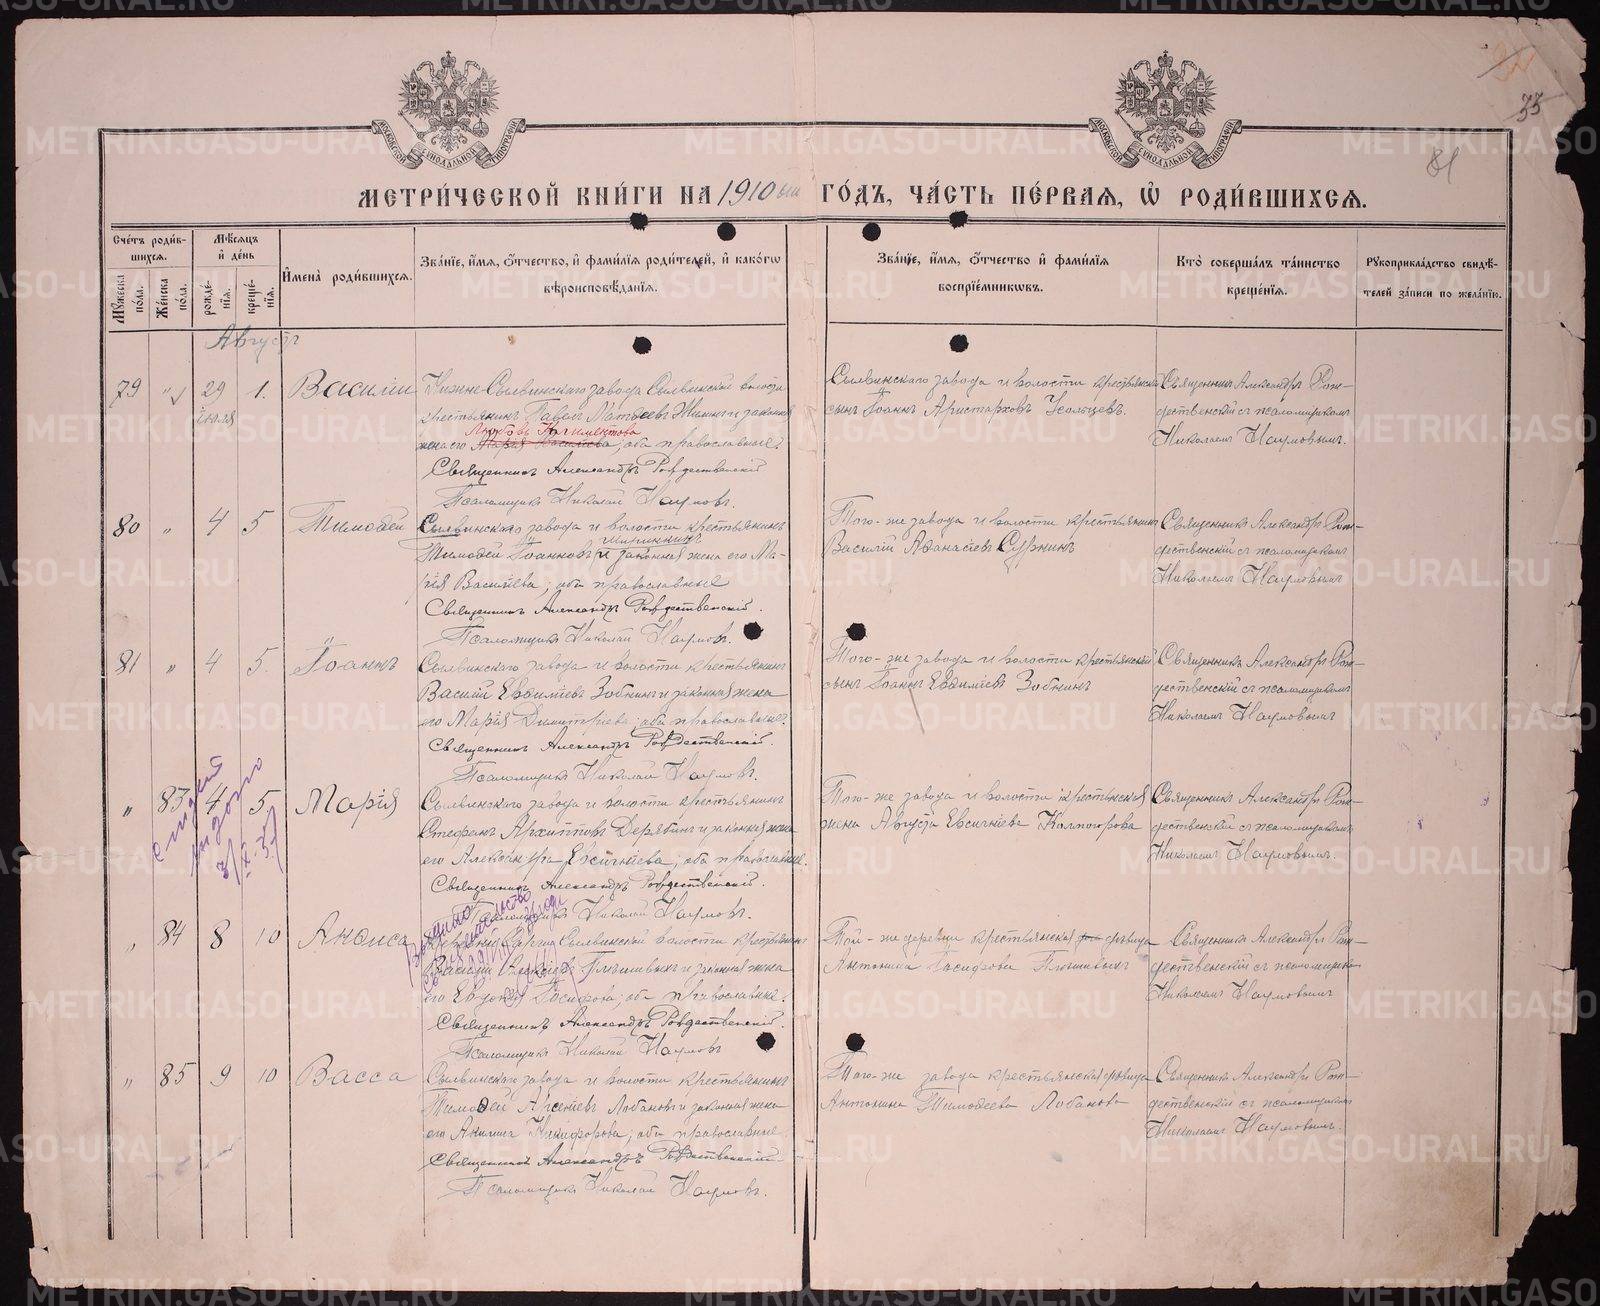 33
81
МОСКОВСКОЙ СѴНОДАЛЬНОЙ ТИПОГРАФІИ
МОСКОВСКОЙ СѴНОДАЛЬНОЙ ТИПОГРАФІИ
МЕТРИ́ЧЕСКОЙ КНИ́ГИ НА 1910 ый ГО́ДЪ, ЧА́СТЬ ПЕ́РВАЯ, Ѡ҆ РОДИ́ВШИХСЯ.
Сче́тъ роди́вшихся.
Мꙋ́жеска по́ла.
Же́нска по́ла.
Мѣ́сяцъ и҆ де́нь
рожде́нїя.
креще́нїя.
И҆мена̀ роди́вшихся.
Зва́нїе, и҆́мя, ѻ҆́тчество, и҆ фами́лїя роди́телей, и҆ како́гѡ вѣроисповѣ́данїя.
Зва́нїе, и҆́мя, ѻ҆́тчество и҆ фами́лїя воспрїе́мникѡвъ.
Кто̀ соверша́лъ та́инство креще́нїя.
Рꙋкоприкла́дство свидѣ́телей за́писи по жела́нїю.
Августъ
79 " 29 іюля 1. Василій
Нижне-Сылвинскаго завода Сылвинской волости
крестьянинъ Павелъ Матѳеевъ Жилинъ и законная
жена его Марія Васильева, оба православные.
Священникъ Александръ Рождественскій
Псаломщикъ Николай Наумовъ.
Сылвинскаго завода и волости крестьянскій
сынъ Іоаннъ Аристарховъ Усольцевъ.
Священникъ Александръ Рож-
дественскій съ псаломщикомъ
Николаемъ Наумовымъ.
80 " 4 5 Тимоѳей
Сылвинскаго завода и волости крестьянинъ
Тимоѳей Іоанновъ и законная жена его Ма-
рія Васильева; оба православные
Священникъ Александръ Рождественскій.
Псаломщикъ Николай Наумовъ.
Того-же завода и волости крестьянинъ
Василій Аѳанасіевъ
Священникъ Александръ Рож-
дественскій съ псаломщикомъ
Николаемъ Наумовымъ
81 " 4 5. Іоаннъ
Сылвинскаго завода и волости крестьянинъ
Василій Евѳиміевъ Зобнинъ и законная жена
его Марія Димитріева; оба православные.
Священникъ Александръ Рождественскій.
Псаломщикъ Николай Наумовъ.
Того-же завода и волости крестьянскій
сынъ Іоаннъ Евѳиміевъ Зобнинъ
Священникъ Александръ Рож-
дественскій съ псаломщикомъ
Николаемъ Наумовымъ
" 83 4 5 Марія
Сылвинскаго завода и волости крестьянинъ
Стефанъ Архипповъ Дерябинъ и законная жена
его Александра Евсигніева, оба православные.
Священникъ Александръ Рождественскій.
Псаломщикъ Николай Наумовъ.
Того-же завода и волости крестьянская
жена Августа Евсигніева Колмогорова
Священникъ Александръ Рож-
дественскій съ псаломщикомъ
Николаемъ Наумовымъ.
" 84 8 10 Анѳиса
Сылвинской волости крестьянинъ
Василій и законная жена
его Евдокія Іосифова; оба православные.
Священникъ Александръ Рождественскій.
Псаломщикъ Николай Наумовъ
Той-же деревни крестьянская дѣвица
Антонина
Священникъ Александръ Рож-
дественскій съ псаломщикомъ
Николаемъ Наумовымъ
" 85 9 10 Васса
Сылвинскаго завода и волости крестьянинъ
Тимоѳей Арсеніевъ Лобановъ и законная жена
его Акилина Никифорова; оба православные.
Священникъ Александръ Рождественскій
Псаломщикъ Николай Наумовъ.
Того-же завода крестьянская дѣвица
Антонина Тимоѳеева Лобанова
Священникъ Александръ Рож-
дественскій съ псаломщикомъ
Николаемъ Наумовымъ.
METRIKI.GASO-URAL.RU